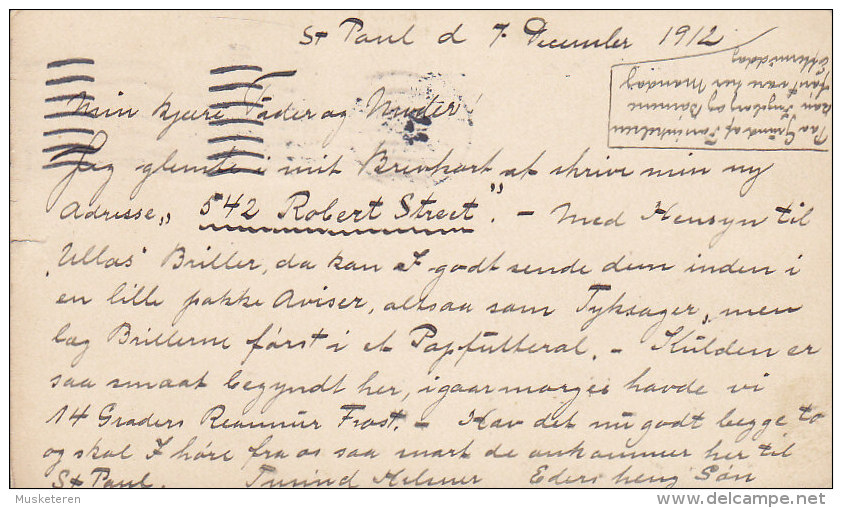 St Paul d 7 December 1912
Paa Grund af Forsinkelsen
kan Ingeborg og Børnene
først være her Mandag
Eftermiddag
Min kjære Fader og Moder!
Jeg glemte i mit Brevkort at skrive min ny
Adresse „ 542 Robert Street". – Med Hensyn til
Ullas' Briller, da kan I godt sende dem inden i
en lille pakke Aviser, altsaa som Tryksager, men
læg Brillerne først i et Papfutteral. – Kulden er
saa smaat begyndt her, igaarmorges havde vi
14 Graders Reaumur Frost. – Hav det nu godt begge to
og skal I høre fra os saa snart de ankommer her til
St Paul. Helmer Eders heng Søn
Musketeren
delcampe.net